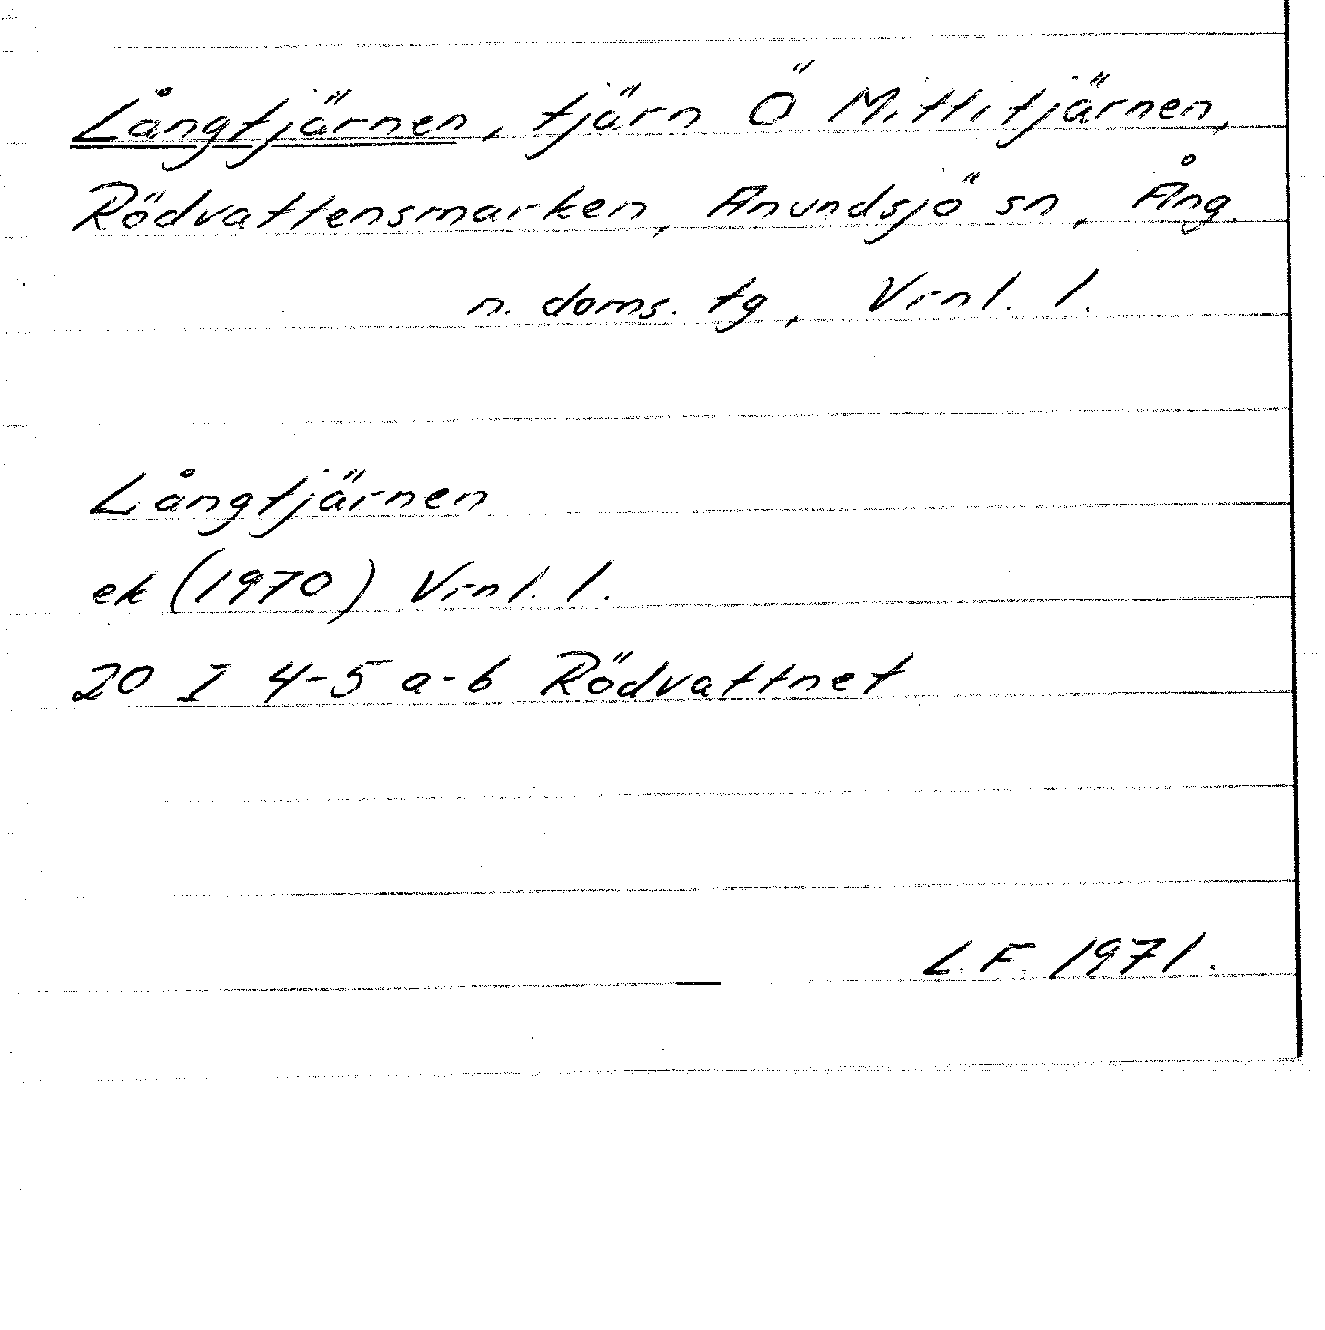 Långtjärnen, tjärn Ö Mittitjärnen,
Rödvattensmarken, Anundsjö sn, Ång.
n. doms. tg, Vrnl. l.
Långtjärnen
ek (1970) Vrnl. l.
20 I 4-5 a-b Rödvattnet
L.F. 1971.